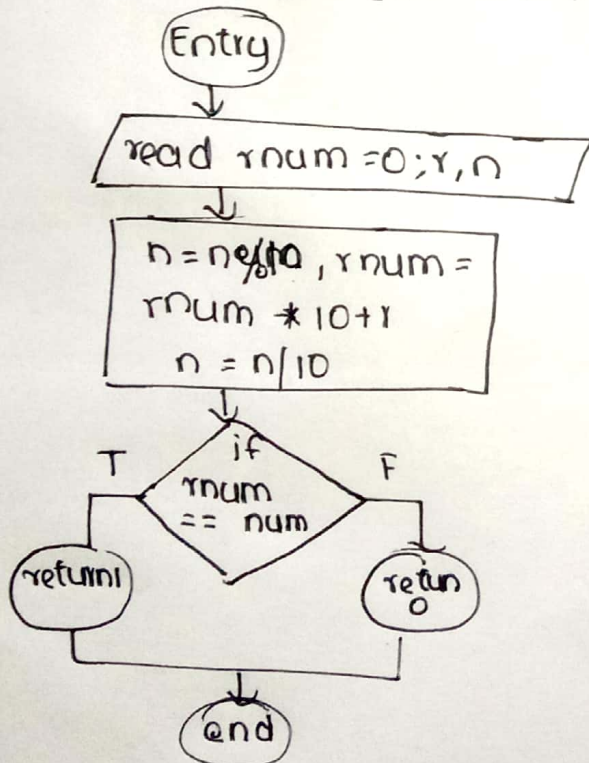 Entry
read rnum =0;r,n
n=n%10, rnum =
rnum * 10+r
n = n/10
if
T
F
rnum
== num
return1
retun
0
end